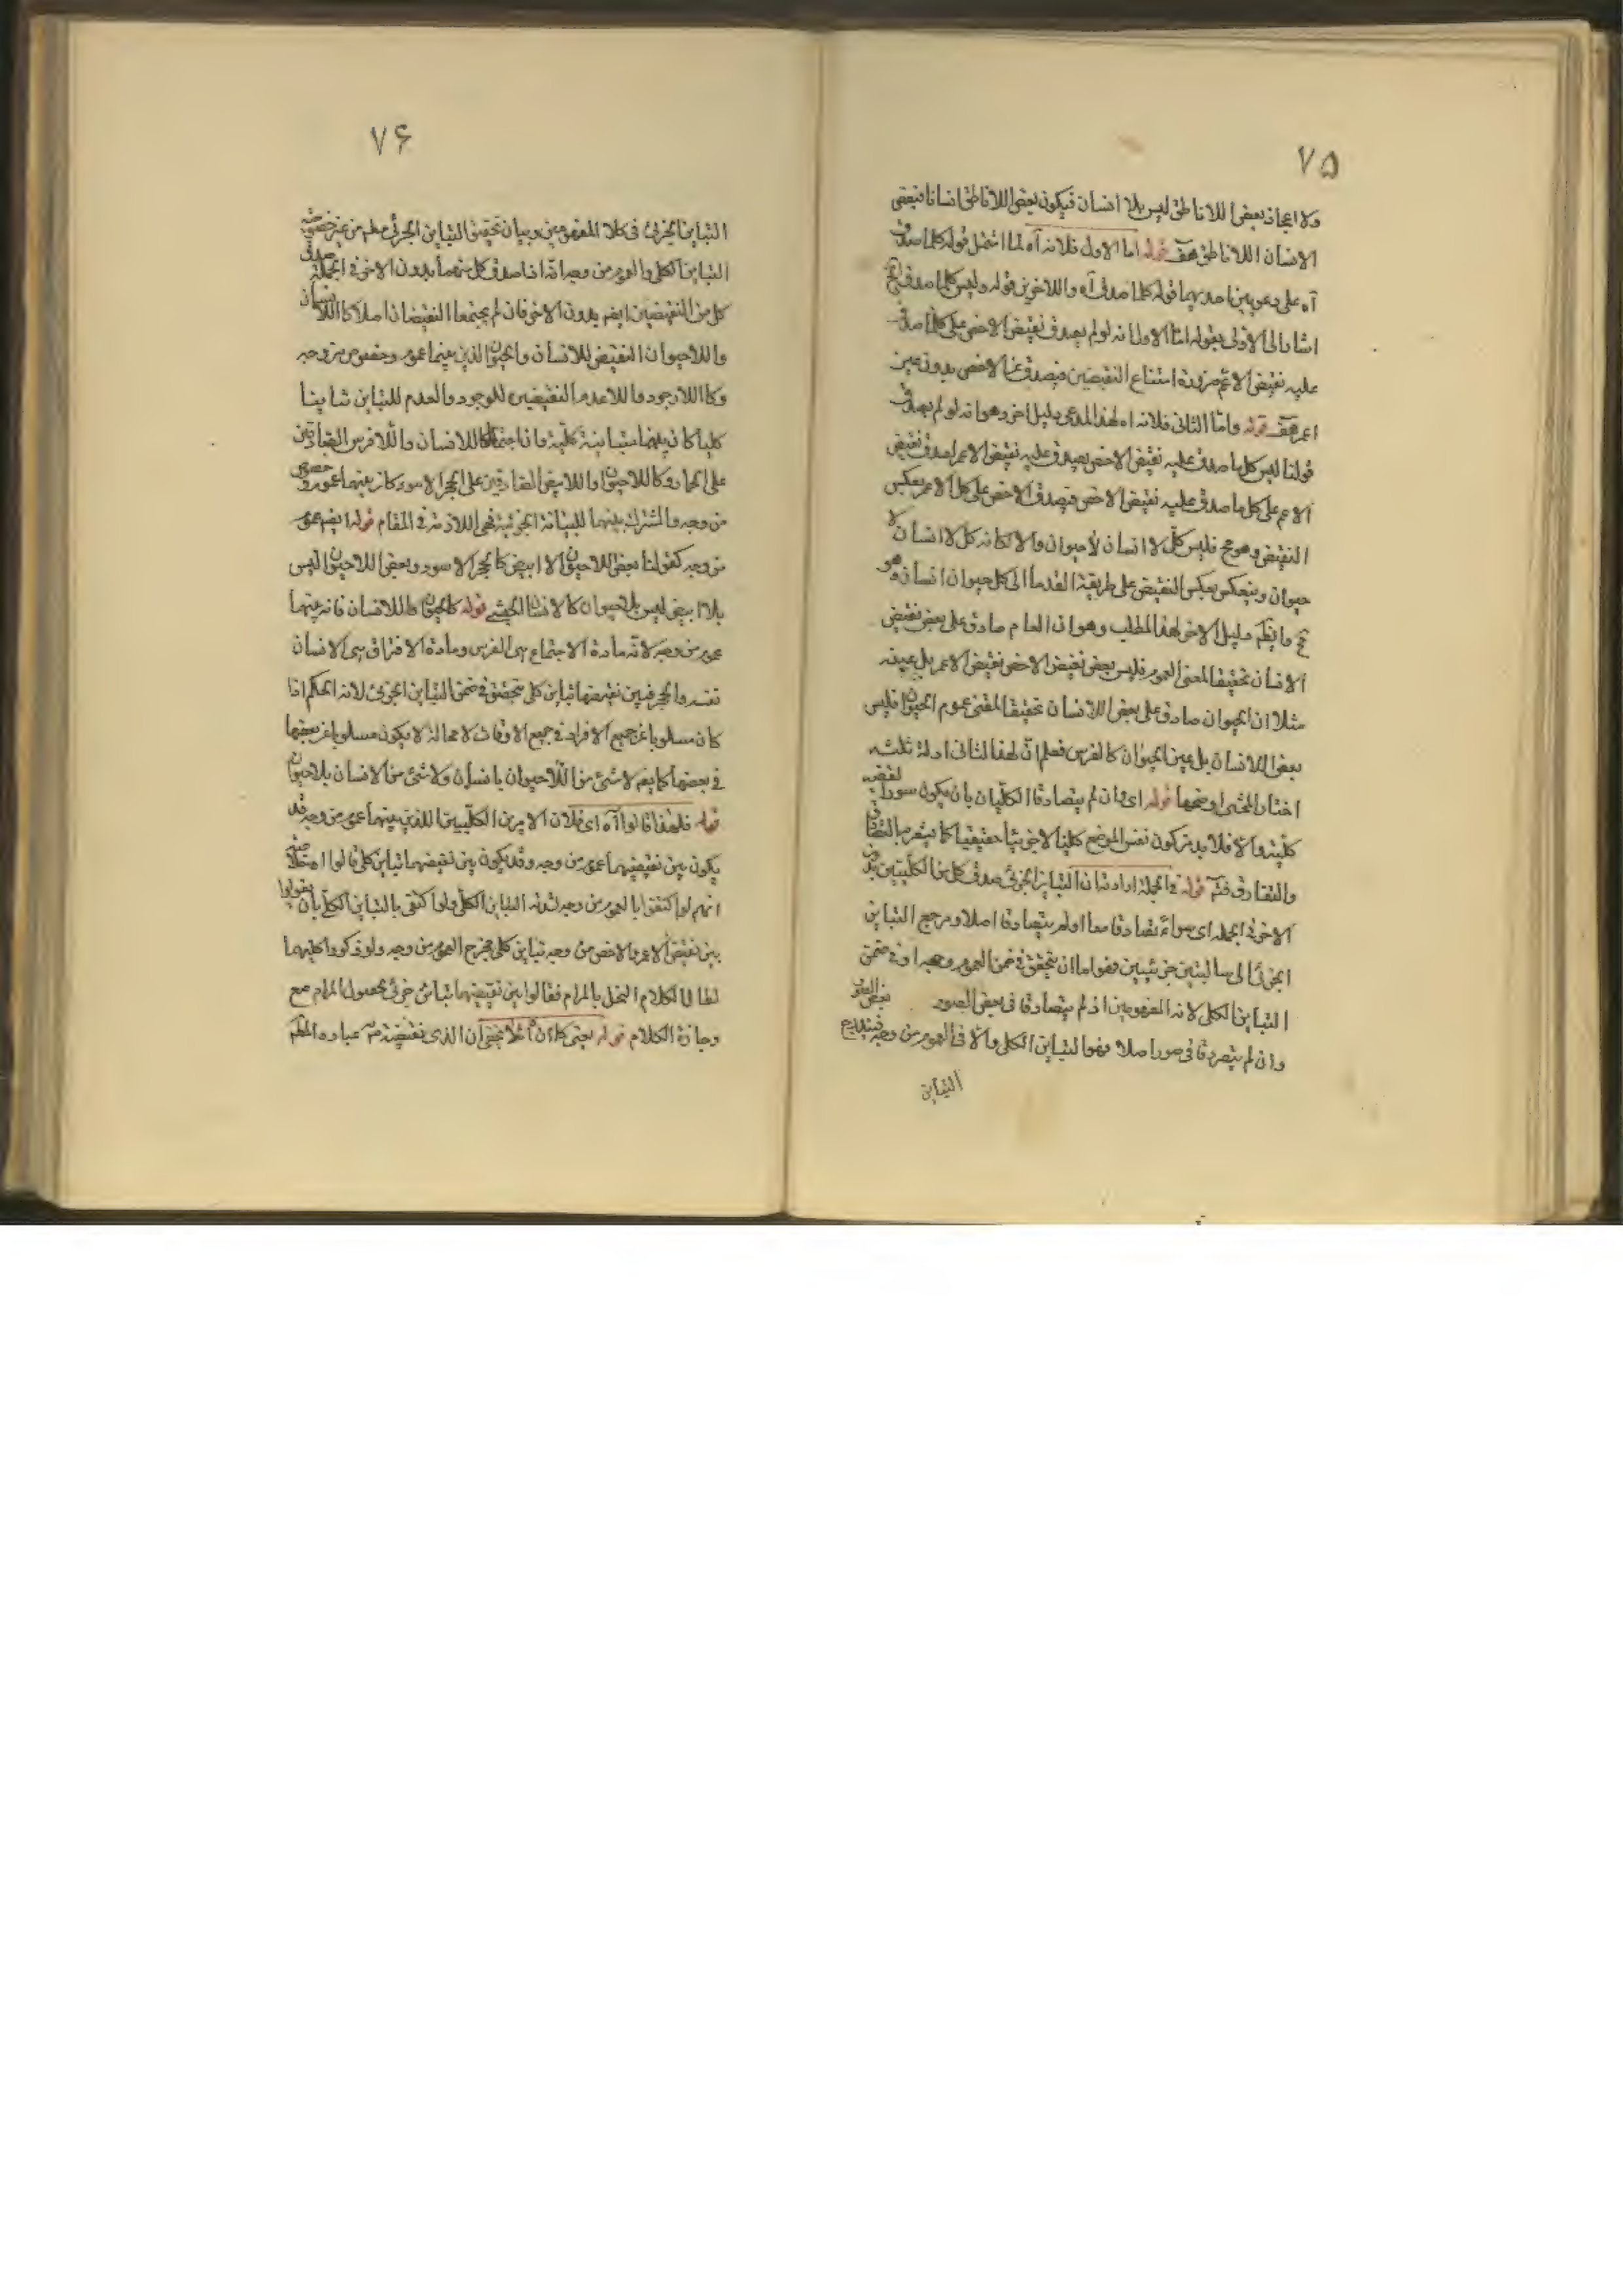 ٧٥
ولا ايجاز بعض اللاناطق ليس بلا انسان فيكون بعض اللاناطق انسانا فبعض
الانسان اللاناطق هف قوله اما الاول فلانه آه لما اشتمل قوله كلما صدق
آه على دعويين احديهما قوله كلما صدق آه والاخرى قوله وليس كلما صدق
اشار الى الاولى بقوله اما الاول انه لو لم يصدق نقيض الاخص على كلما صدق
عليه نقيض الاعم ضرورة امتناع النقيضين فيصدق عين الاخص بدون عين
اعم هف قوله واما الثانى فلانه اه لهذا المدعى دليل اخر وهو انه لو لم يصدق
قولنا ليس كل ما صدق عليه نقيض الاخص يصدق عليه نقيض الاعم لصدق نقيض
الاعم على كل ما صدق عليه نقيض الاخص فيصدق الاخص على كل الاعم بعكس
النقيض وهو مح فليس كل لا انسان لاحيوان والا لكانه كل لا انسان لا
حيوان وينعكس بعكس النقيض على طريقة القدما الى كل حيوان انسان وهو
مح دليل الاخر لهذا المطلب وهو ان العام صادق على بعض نقيض
الانسان تحقيقا لمعنى العموم فليس بعض نقيض الاخص نقيض الاعم بل عينه
مثلا ان الحيوان صادق على بعض اللاانسان تحقيقا لمعنى عموم الحيوان فليس
بعض اللاانسان بل عين الحيوان كالفرس فعلم ان لهذا الثانى ادلة ثلثه
اختار المحشى اوضحها قوله اى وان لم يتصادقا الكليان بان يكون سورا لقضيه
كلية والا فلابد كليا لا جزئيا حقيقيا كما يشعر به التصادق
والتفارق فتم قوله فى الجملة اراد ان التباين الجزئى صدق كل من الكليين بدون
الاخر فى الجملة اى سواء تصادقا معا او لم يتصادقا اصلا ومرجع التباين
الجزئى الى سالبتين جزئيتين فهو اما ان يتحقق فى ضمن العموم وجه او فى ضمن
التباين الكلى لانه المفهومين اذ لم يتصادقا فى بعض الصور
وان لم يتصادقا فى صور اصلا فهو التباين الكلى والا فالعموم من وجه
التباين
٧۶
التباين الجزئى فى كلا المفهومين وبيان تحقيق التباين الجزئى معلم من غير خصوصية
التباين الكلى والعموم من وجه انه اذا صدق كل منهما بدون الاخر فى الجملة صدق
كل من النقيضين ايضم بدون الاخر فان لم يجتمعا النقيضان اصلا كاللاانسان
واللاحيوان النقيض للانسان والحيوان الذين بينهما عموم وخصوص من وجه
وكاللاوجود واللاعدم النقيضين للوجود والعدم للتباين تباينا
كليا كان بينهما مباينة كلية وان اجتمعا كاللاانسان واللافرس الصادقين
على الحمار وكاللاحيوان واللابيض الصادقين على الحجر الاسود كان بينهما عموم وخصوص
من وجه والمشترك بينهما المباينة الجزئية فهى اللازمة فى المقام قوله ايضم عموم
من وجه كقولنا بعض اللاحيوان الا ابيض كالحجر الاسود وبعض اللاحيوان ليس
بلا ابيض ليس بلاحيوان كالانسان الحبشى قوله كالحيوان واللاانسان فانه بينهما
عموم من وجه لانه مادة الاجتماع هى الفرس ومادة الافتراق هى الانسان
نفسه والحجر فبين نقيضهما تباين كلى متحقق فى ضمن التباين الجزئى لانه الحكم اذا
كان مسلوبا عن جميع الافراد فى جميع الاوقات لا محالة لا يكون مسلوبا عن بعضها
فى بعضها كما يضم لا شئ من اللاحيوان بانسان ولا شئ من الانسان بلاحيوان
قوله فلهذا قالوا آه اى فلان الامرين الكليين اللذين بينهما عموم من وجه قد
يكون بين نقيضيهما عموم من وجه وقد يكون بين نقيضهما تباين كلى قالوا
انهم لو اكتفوا بالعموم من وجه التباين الكلى ولو اكتفى بالتباين الكلى بان يقولوا
بين نقيض الاعم والاخص من وجه تباين كلى لخرج العموم من وجه ولو ذكروا كليهما
لطال الكلام المخل بالمرام فقالوا بين نقيضهما تباين جزئى لحصول المرام مع
وجازة الكلام قوله يعنى كما ان آه لا يخفى ان الذى نقتضيه عباره المص